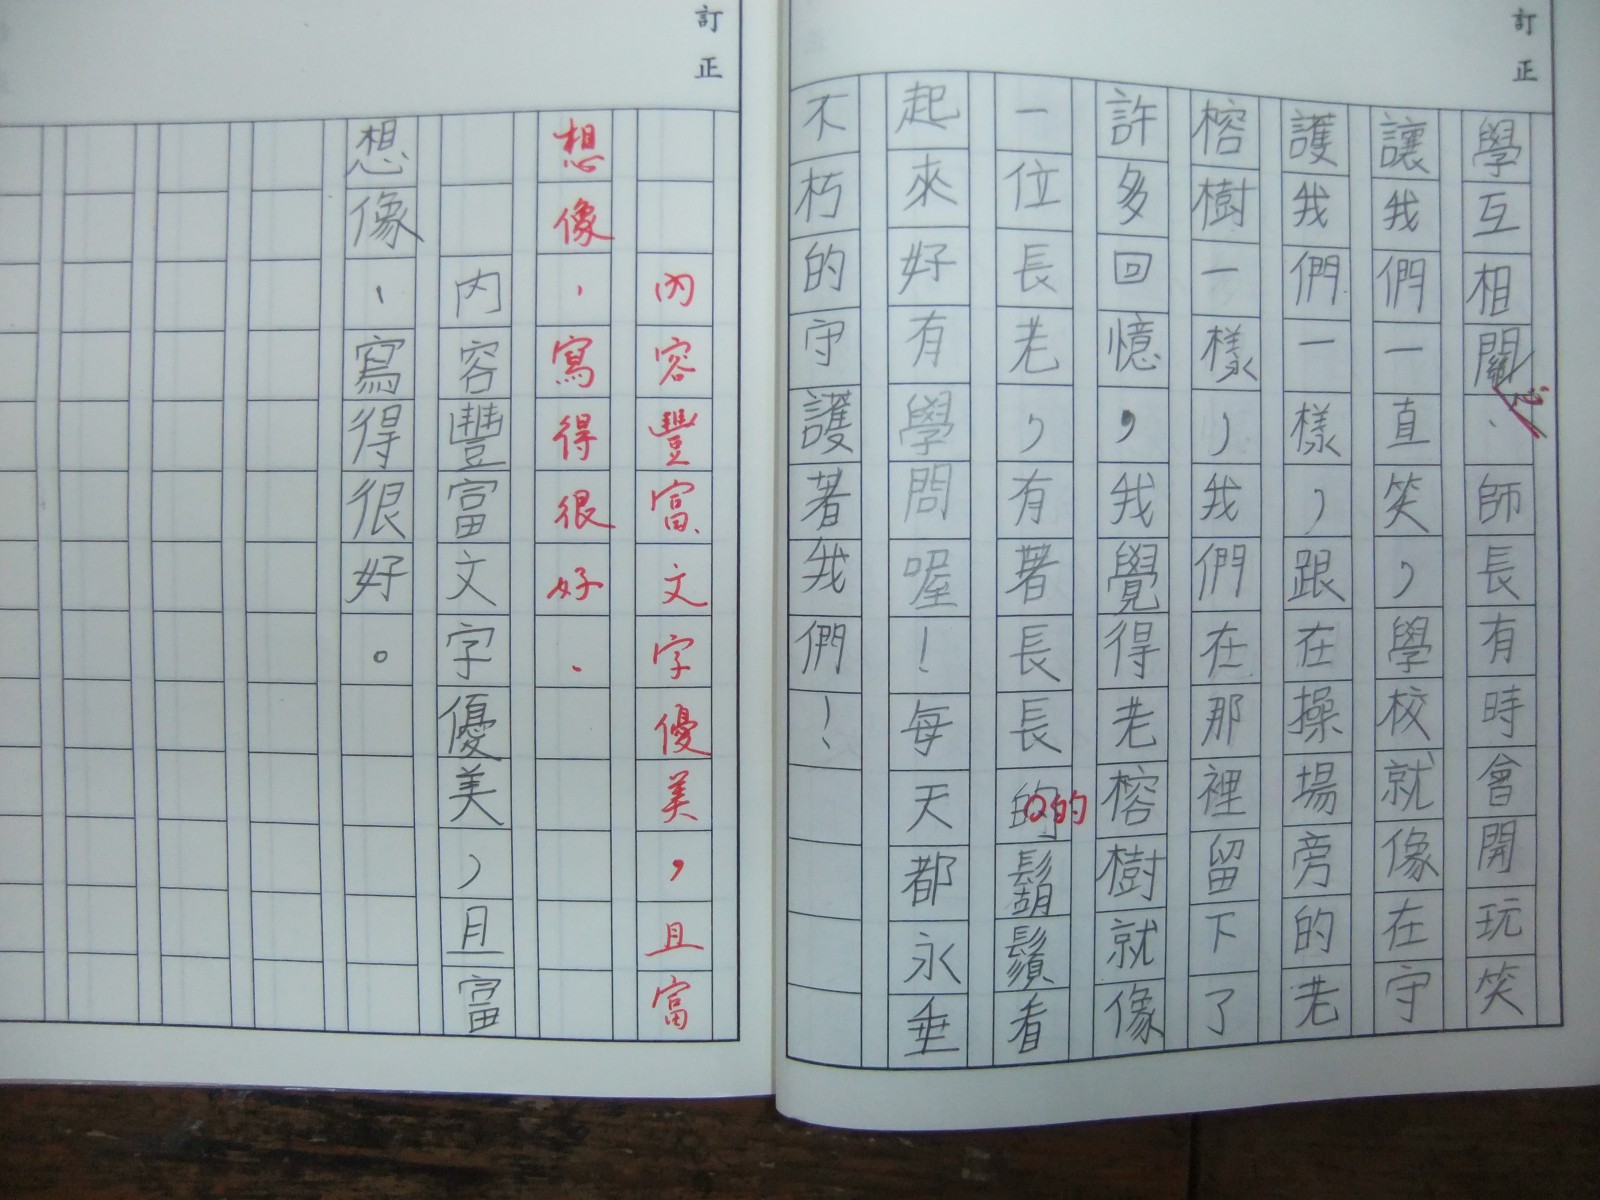 訂正
學互相關、師長有時會開玩笑
讓我們一直笑，學校就像在守
護我們一樣，跟在操場旁的老
榕樹一樣，我們在那裡留下了
許多回憶，我覺得老榕樹就像
一位長老，有著長長的鬍鬚看
的
起來好有學問喔！每天都永垂
不朽的守護著我們！
訂正
內容豐富、文字優美，且富
想像，寫得很好。
內容豐富文字優美，且富
想像，寫得很好。